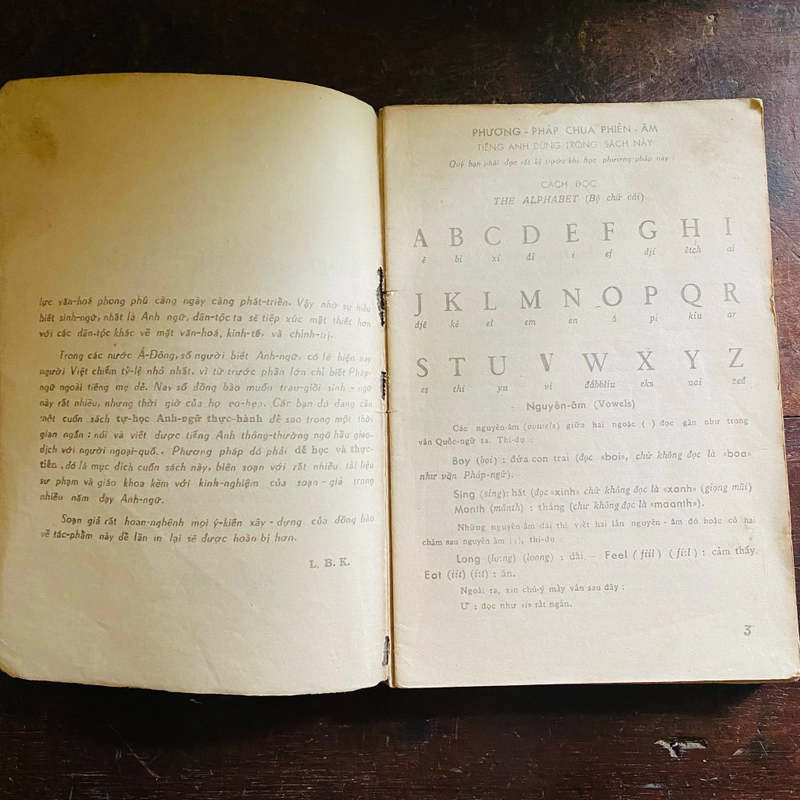 lực văn-hoá phong phú càng ngày càng phát-triển. Vậy nhờ sự hiểu
biết sinh-ngữ, nhất là Anh ngữ, dân-tộc ta sẽ tiếp xúc mật thiết hơn
với các dân-tộc khác về mặt văn-hoá, kinh-tế, và chính-trị.
Trong các nước Á-Đông, số người biết Anh-ngữ, có lẽ hiện nay
người Việt chiếm tỷ-lệ nhỏ nhất, vì từ trước phần lớn chỉ biết Pháp-
ngữ ngoài tiếng mẹ đẻ. Nay số đồng bào muốn trau-giồi sinh-ngữ
này rất nhiều, nhưng thời giờ của họ eo-hẹp. Các bạn đó đang cần
một cuốn sách tự-học Anh-ngữ thực-hành để sao trong một thời
gian ngắn: nói và viết được tiếng Anh thông-thường ngõ hầu giao-
dịch với người ngoại-quố.. Phương pháp đó phải dễ học và thực-
tiễn. đó là mục đích cuốn sách này, biên soạn với rất nhiều tài liệu
sư phạm và giáo khoa kèm với kinh-nghiệm của soạn-giả trong
nhiều năm dạy Anh-ngữ.
Soạn giả rất hoan-nghênh mọi ý-kiến xây-dựng của đồng bào
về tác-phẩm này để lần in lại sẽ được hoàn bị hơn.
L. B. K.
PHƯƠNG - PHÁP CHUA PHIÊN - ÂM
TIẾNG ANH DÙNG TRONG SÁCH NÀY
Quý bạn phải đọc rất kỹ trước khi học phương-pháp này
CÁCH ĐỌC
THE ALPHABET (Bộ chữ cái)
A B C D E F G H I
ê bi xi đi i ef dji êtch ai
J K L M N O P Q R
djê kê el em en ô pi kiu ar
S T U V W X Y Z
es thi yu vi đắbbliu eks uai zeđ
Nguyên-âm (Vowels)
Các nguyên-âm (vowels) giữa hai ngoặc ( ) đọc gần như trong
vần Quốc-ngữ ta. Thí-dụ:
Boy (boi) : đứa con trai (đọc «boi», chứ không đọc là «boa»
như vần Pháp-ngữ).
Sing (sing): hát (đọc «xinh» chứ không đọc là «xanh» (giọng mũi)
Month (mânth) : tháng (chư không đọc là «maanth»).
Những nguyên-âm dài thì viết hai lần nguyên-âm đó hoặc có hai
chấm sau nguyên âm (:), thí-dụ :
Long (lo:ng) (loong) : dài. — Feel (fiil) (fi:l) : cảm thấy.
Eat (iit) (i:t) : ăn.
Ngoài ra, xin chú-ý mấy vần sau đây :
Ư : đọc như «i» rất ngắn.
3